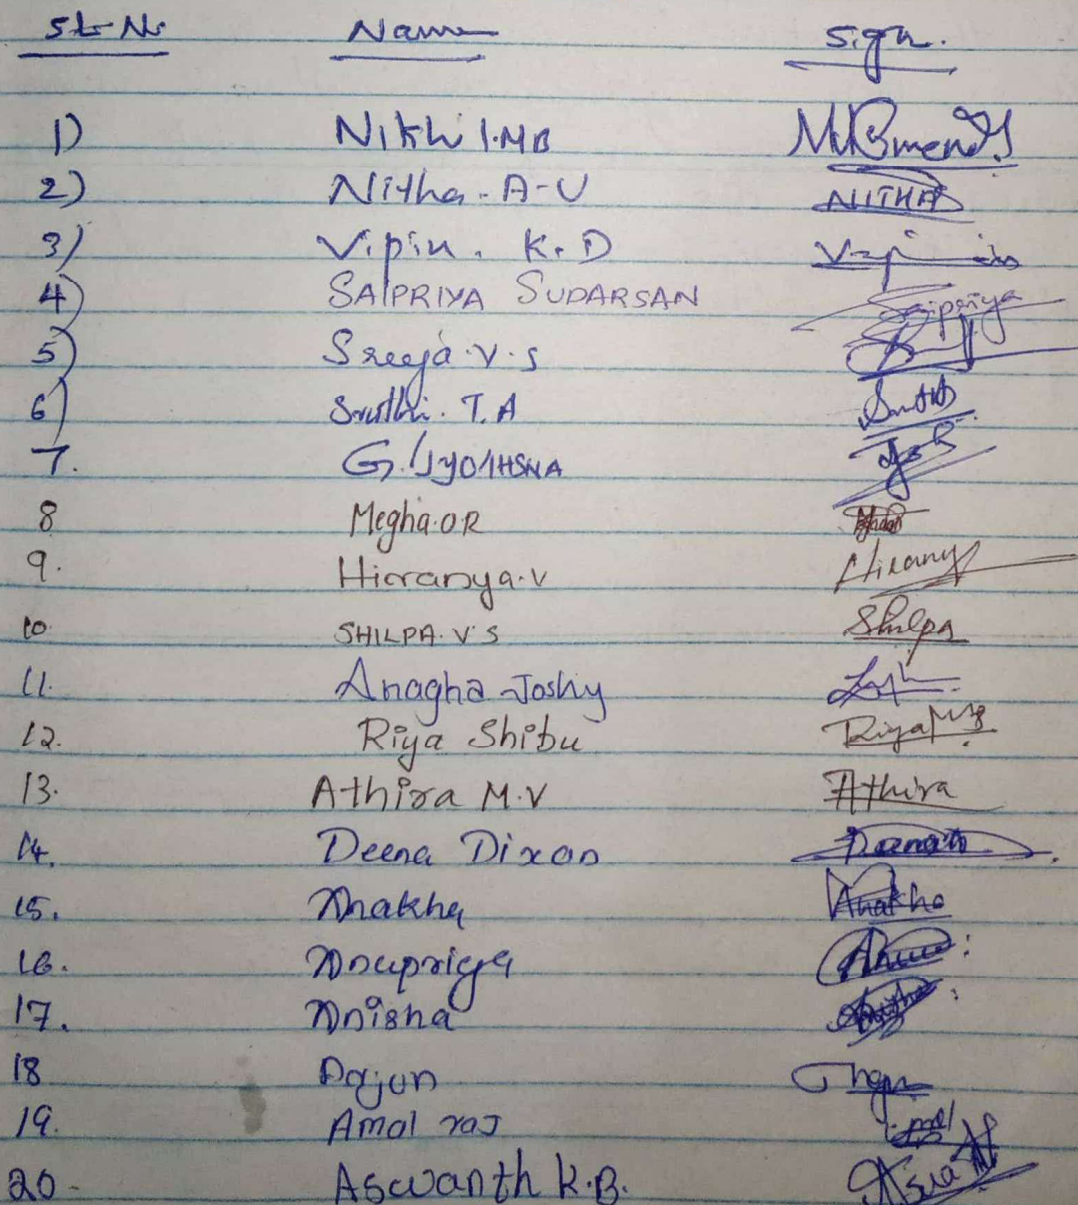 Sl. No. Name Sign.
1) Nikhil.MB
2) Nitha. A-U NITHA
3) Vipin. K.D
4) SAIPRIYA SUDARSAN Saipriya
5) Sreeja.V.S
6) Sruthi. T.A
7. G. JYOTHSNA
8 Megha.O R
9. Hiranya.V Hirany
10 SHILPA. V S Shilpa
11. Anagha Joshy
12. Riya Shibu Riya
13. Athira M.V Athira
14. Deena Dixon
15. Anakha Anakha
16. Anupriya
17. Anisha
18 Arjun
19. Amal raj
20 Aswanth K.B.